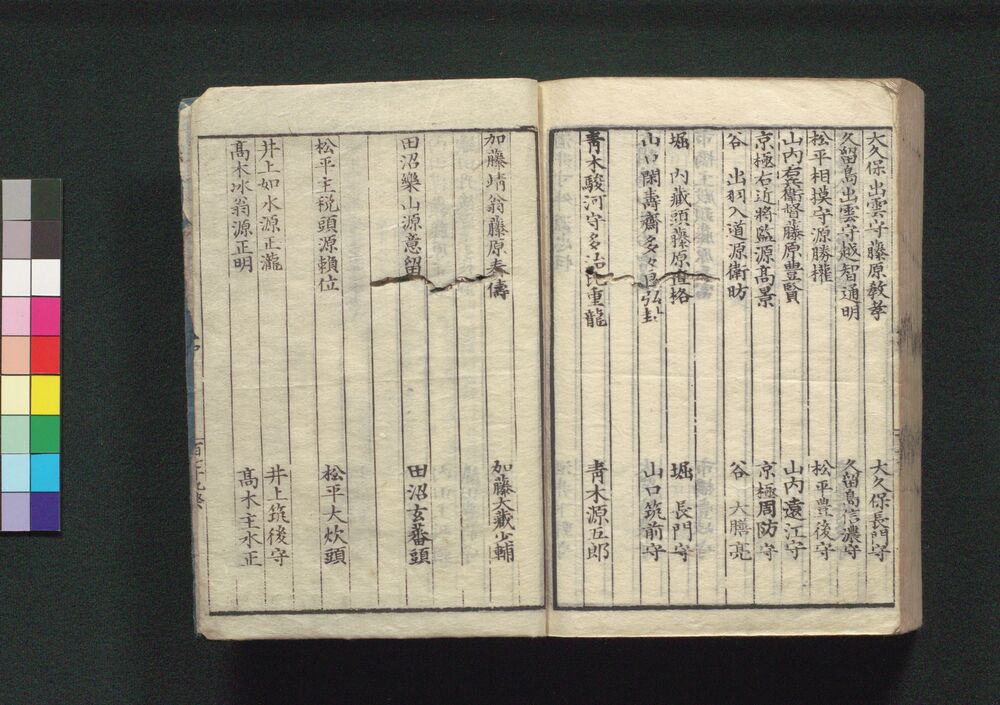 大久保出雲守藤原教孝　大久保長門守
久留島出雲守越智通明　久留島信濃守
松平相摸守源勝權　松平豊後守
山内右兵衛督藤原豊賢　山内遠江守
京極右近将監源髙景　京極周防守
谷　出羽入道源衛昉　谷　大膳亮
堀　内藏頭藤原直格　堀　長門守
山口閑壽齋多々良弘封　山口筑前守
青木駿河守多治比重龍　青木源五郎
加藤靖翁藤原泰儔　加藤大藏少輔
田沼樂山源意留　田沼玄蕃頭
松平主税頭源賴位　松平大炊頭
井上如水源正瀧　井上筑後守
髙木冰翁源正明　髙木主水正